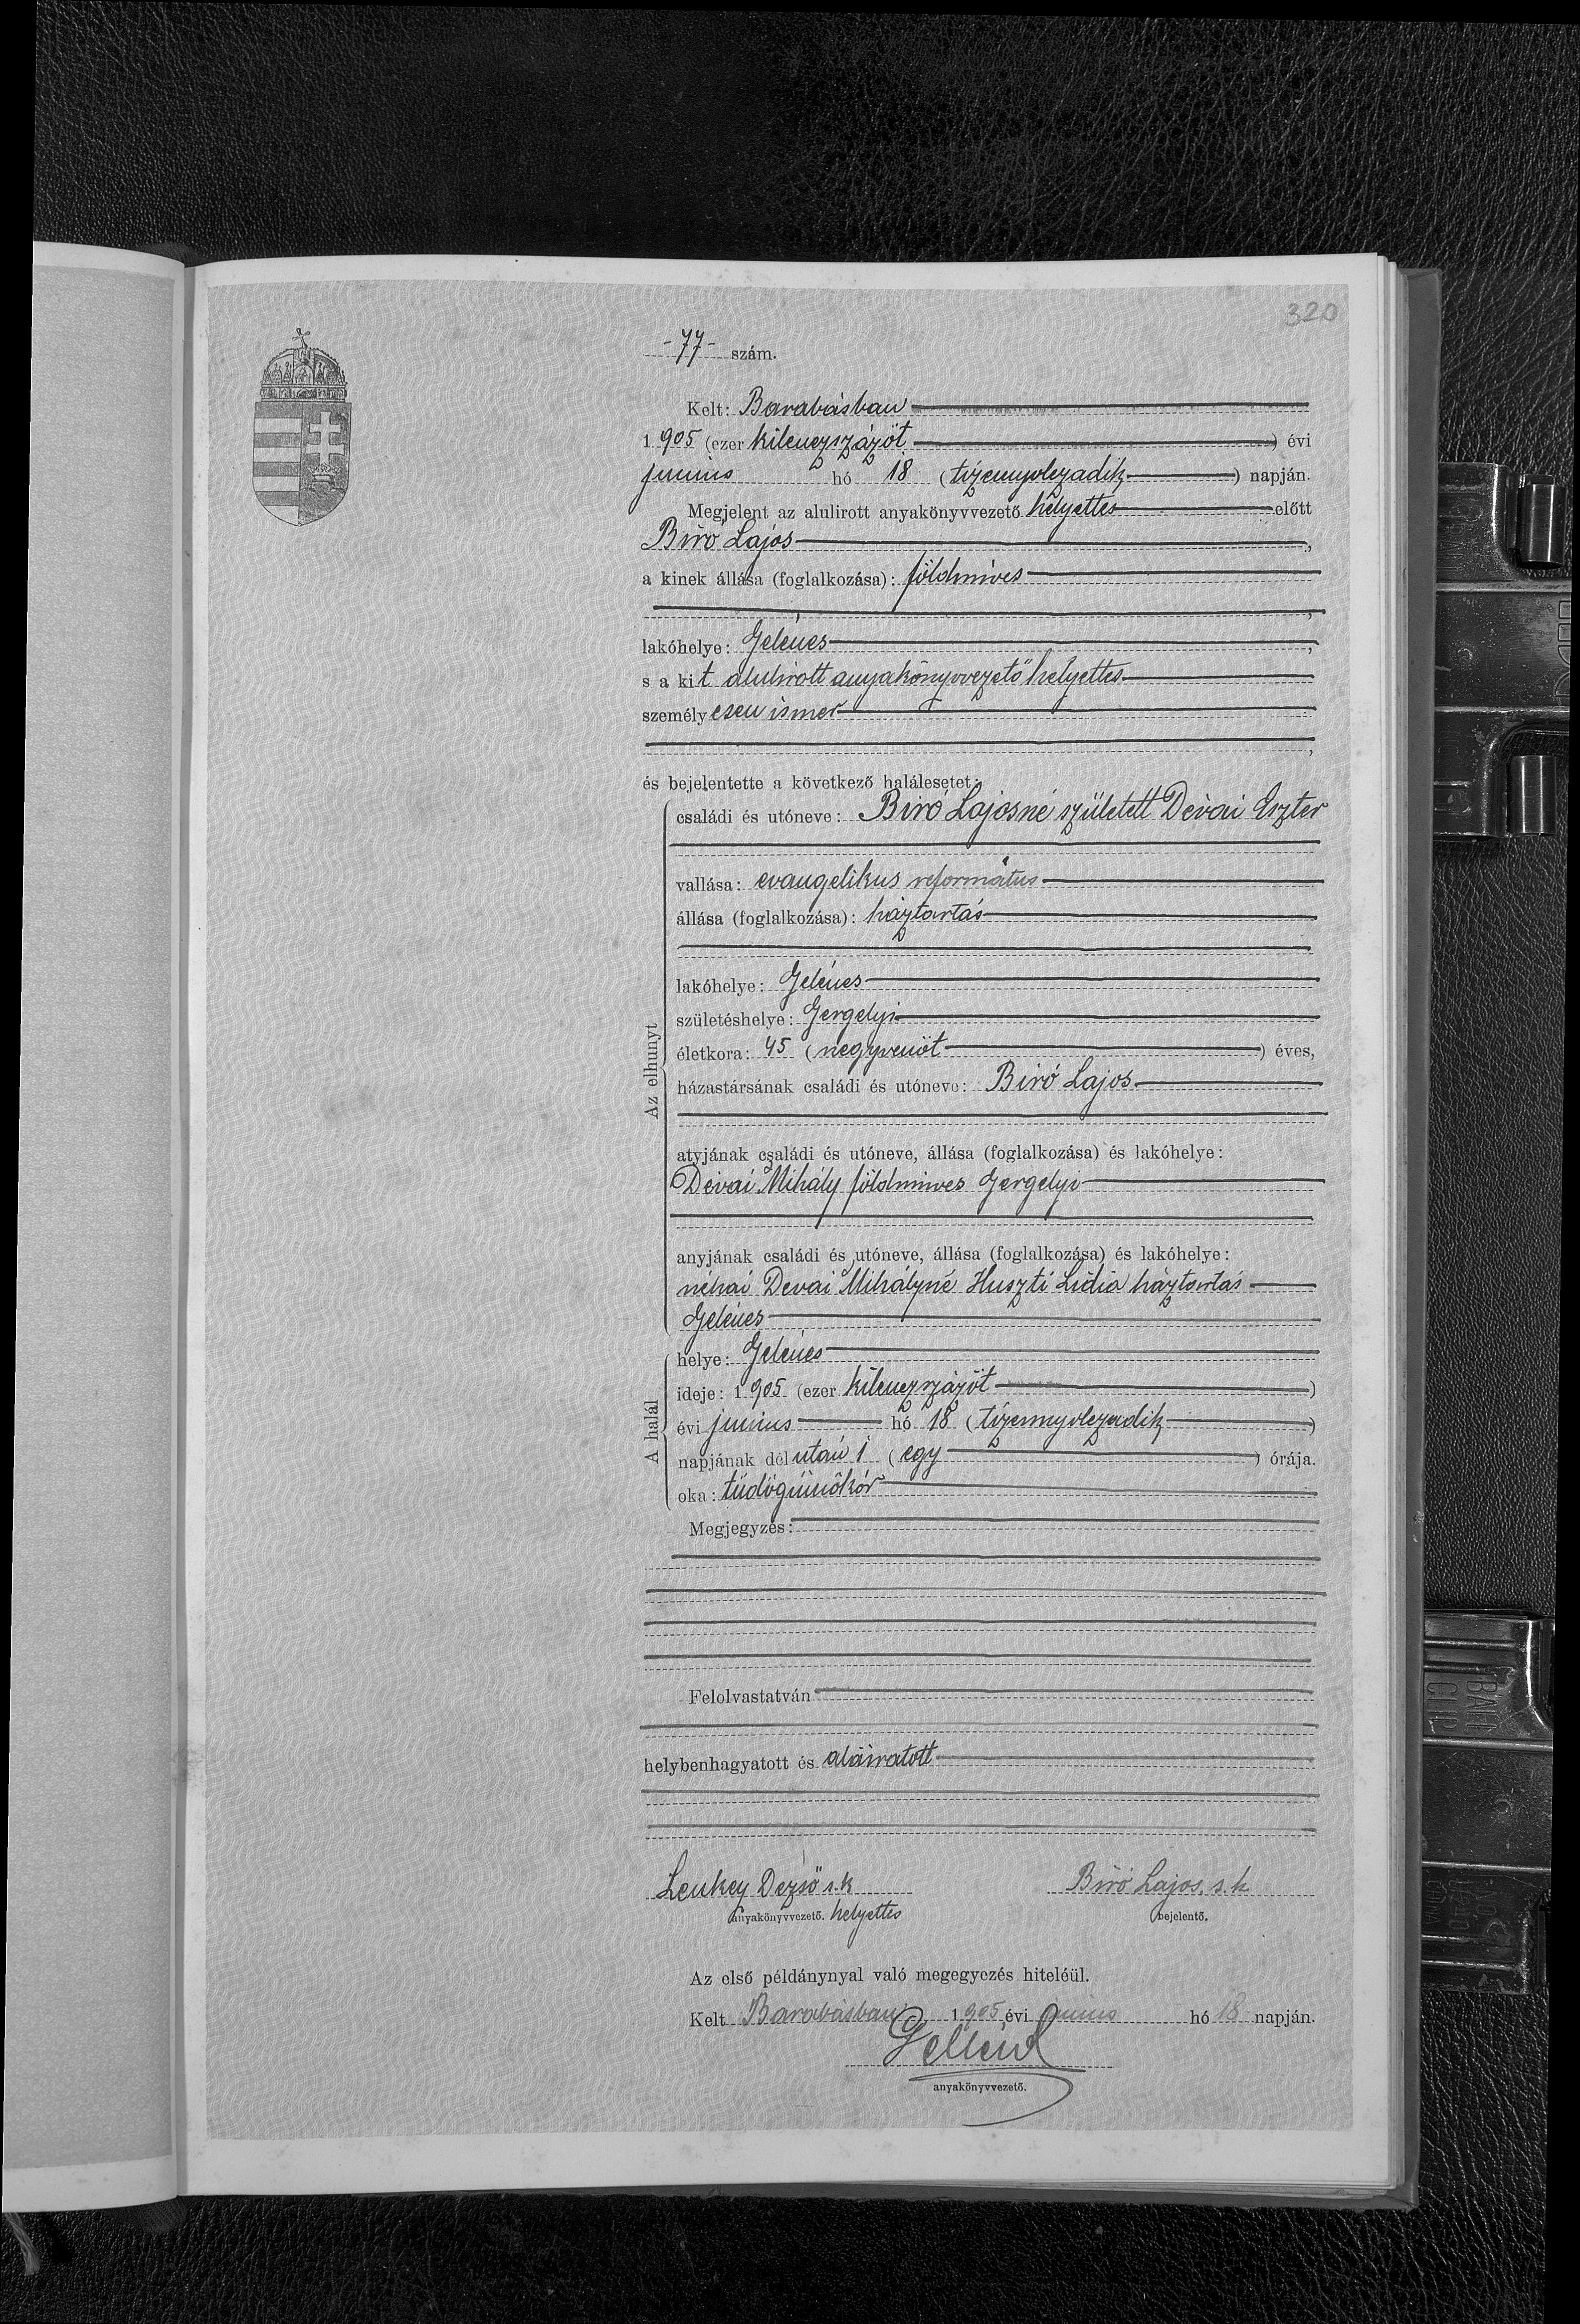 320
-77- szám.
Kelt: Barabásban
1905 (ezer kilenczszázöt) évi
junius hó 18 (tizennyolczadik) napján.
Megjelent az alulirott anyakönyvvezető helyettes előtt
Biró Lajos,
a kinek állása (foglalkozása): földmives
,
lakóhelye: Gelénes,
s a kit alulirott anyakönyvvezető helyettes
személyesen ismer
,
és bejelentette a következő halálesetet:
Az elhunyt
családi és utóneve: Biró Lajosné született Dévai Eszter
vallása: evangelikus református
állása (foglalkozása): háztartás
lakóhelye: Gelénes
születéshelye: Gergelyi
életkora: 45 (negyvenöt) éves,
házastársának családi és utóneve: Biró Lajos
atyjának családi és utóneve, állása (foglalkozása) és lakóhelye:
Dévai Mihály földmives Gergelyi
anyjának családi és utóneve, állása (foglalkozása) és lakóhelye:
néhai Dévai Mihályné Huszti Lidia háztartás
Gelénes
A halál
helye: Gelénes
ideje: 1905 (ezer kilenczszázöt)
évi junius hó 18 (tizennyolczadik)
napjának délután 1 (egy) órája.
oka: tüdőgümőkór
Megjegyzés:
Felolvastatván
helybenhagyatott és aláiratott
Lenkey Dezső s.k Biró Lajos. s.k
anyakönyvvezető. helyettes bejelentő.
Az első példánynyal való megegyezés hiteléül.
Kelt Barabásban 1905 évi junius hó 18 napján.
anyakönyvvezető.
BAL
CLIP